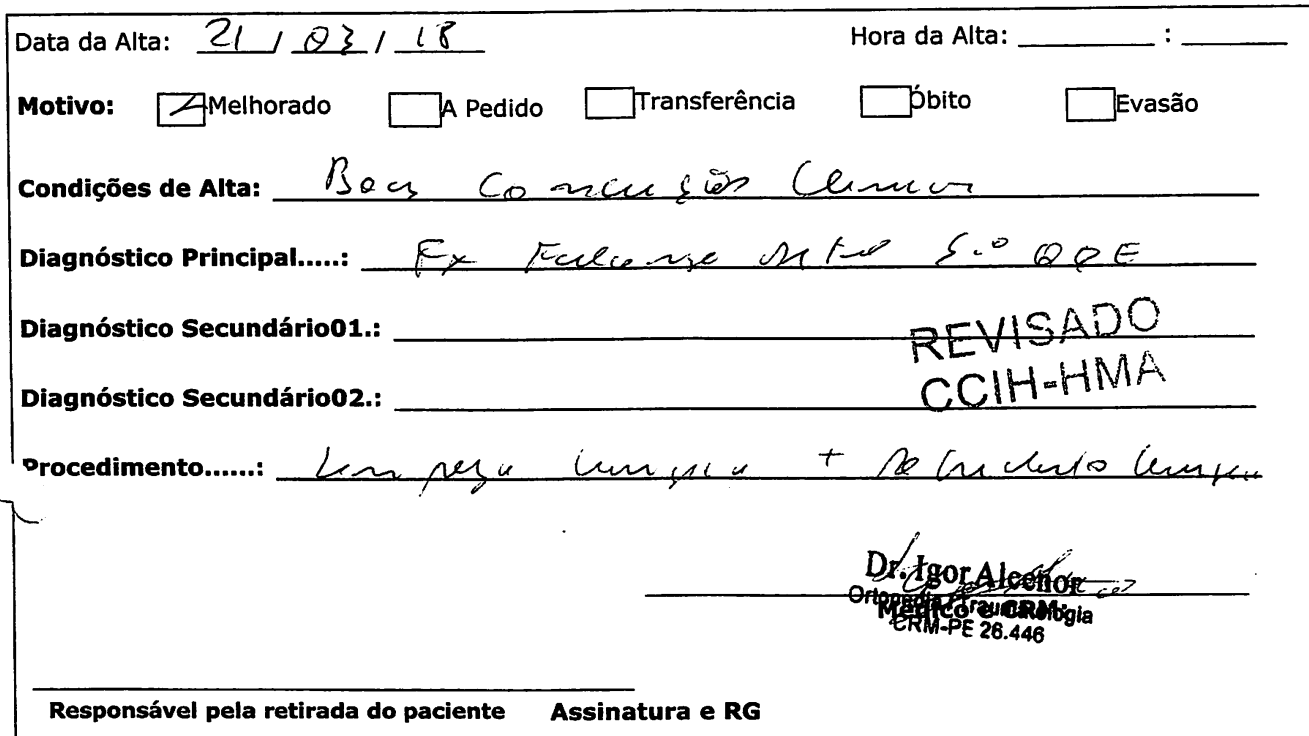 Data da Alta: 21 / 03 / 18 Hora da Alta: ____ : ____
Motivo: Melhorado A Pedido Transferência Óbito Evasão
Condições de Alta: Boas
Diagnóstico Principal.....: Fx Falange 5.º QDE
Diagnóstico Secundário01.:
REVISADO
CCIH-HMA
Diagnóstico Secundário02.:
Procedimento......: Limpeza +
Dr. Igor Alcenor
Ortopedia / Traumatologia
Médico e CRM:
CRM-PE 26.446
Responsável pela retirada do paciente Assinatura e RG